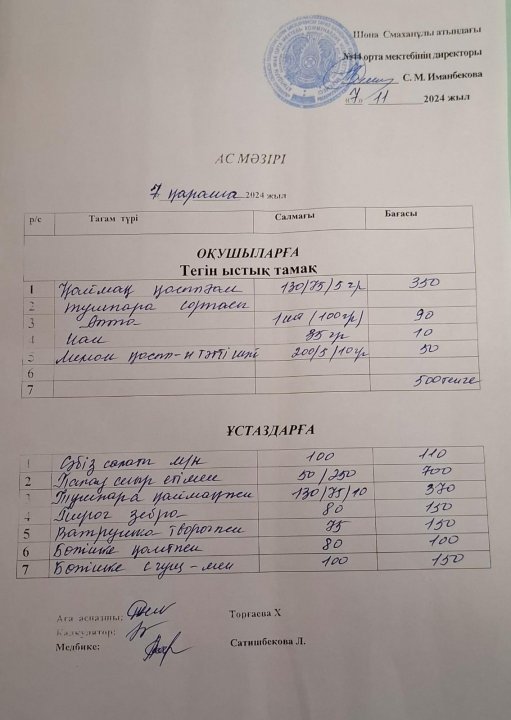 Шона Смаханұлы атындағы
№44 орта мектебінің директоры
С. М. Иманбекова
«7» 11 2024 жыл
АС МӘЗІРІ
7 қараша 2024 жыл
р/с Тағам түрі Салмағы Бағасы
ОҚУШЫЛАРҒА
Тегін ыстық тамақ
1 Қаймақ қосылған 130/75/5 гр 350
2 тушпара сорпасы
3 Алма 1шт (100гр) 90
4 Нан 35 гр 10
5 Лимон қосп-н тәтті шай 200/5/10гр 50
6
7 500 тенге
ҰСТАЗДАРҒА
1 Сәбіз салат 100 110
2 сиыр етімен 50/250 700
3 Тушпара қаймақпен 130/75/10 370
4 Пирог зебра 80 150
5 Ватрушка творогпен 75 150
6 80 100
7 100 150
Аға аспазшы: Торғаева Х
Калкулятор:
Медбике: Сатишбекова Л.